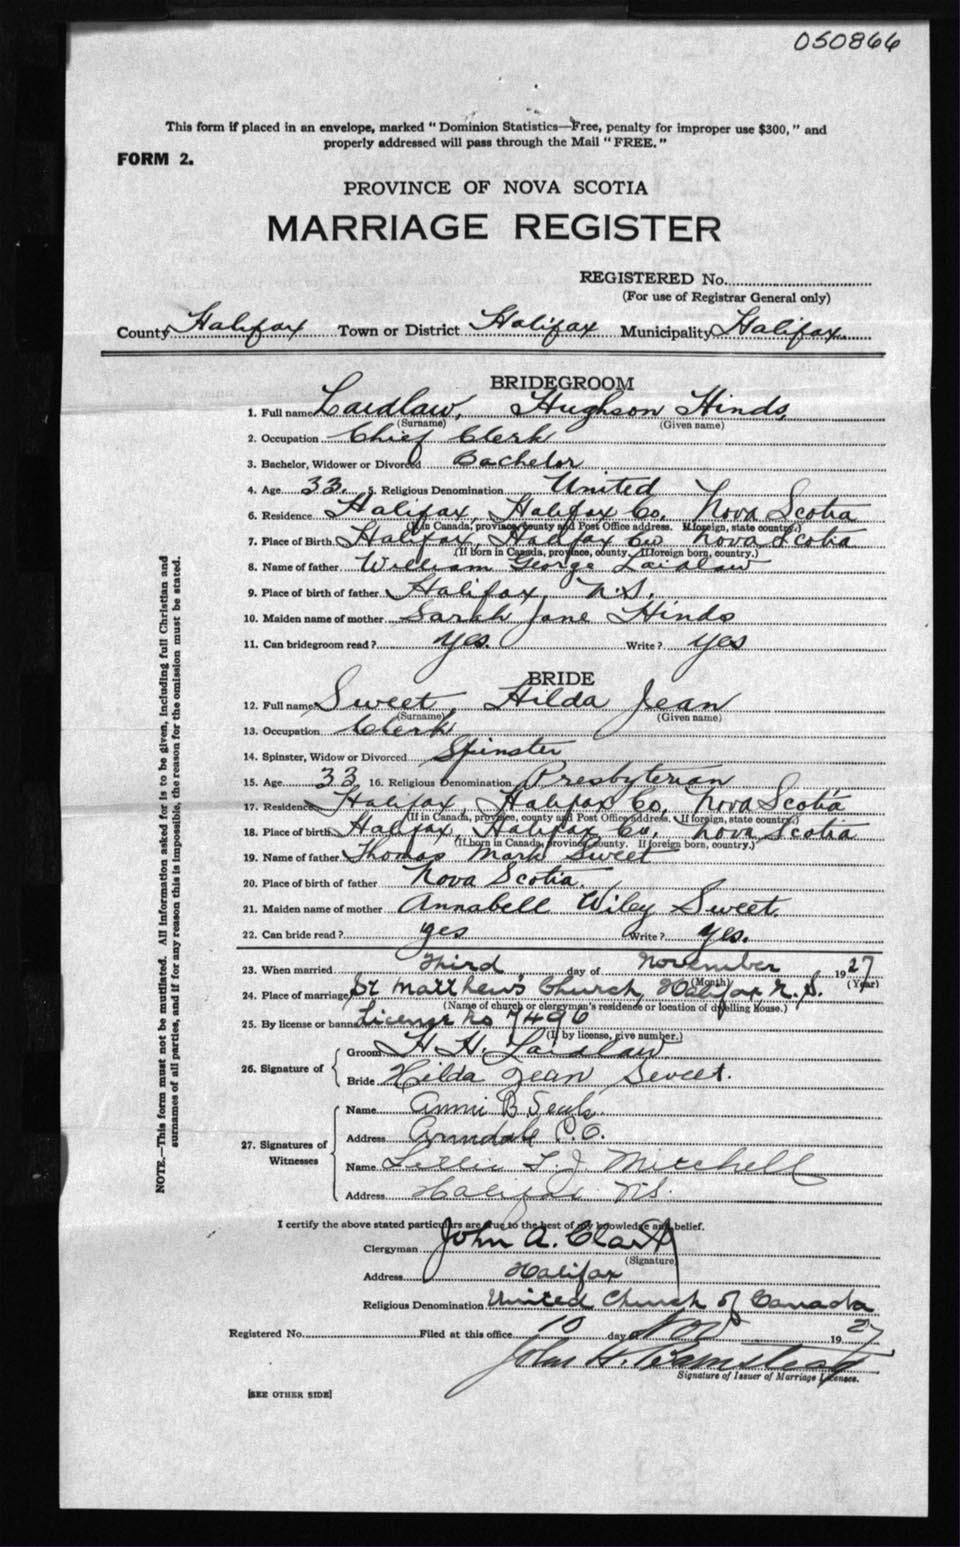 050866
This form if placed in an envelope, marked " Dominion Statistics—Free, penalty for improper use $300, " and
properly addressed will pass through the Mail " FREE. "
FORM 2.
PROVINCE OF NOVA SCOTIA
MARRIAGE REGISTER
REGISTERED No.
(For use of Registrar General only)
County Halifax Town or District Halifax Municipality Halifax
BRIDEGROOM
1. Full name Laidlaw, Hughson Hinds
(Surname) (Given name)
2. Occupation Chief Clerk
3. Bachelor, Widower or Divorced Bachelor
4. Age 33. 5. Religious Denomination United
6. Residence Halifax, Halifax Co. Nova Scotia
(If in Canada, province, county and Post Office address. If foreign, state country.)
7. Place of Birth Halifax, Halifax Co Nova Scotia
(If born in Canada, province, county. If foreign born, country.)
8. Name of father William George Laidlaw
9. Place of birth of father Halifax, N.S.
10. Maiden name of mother Sarah Jane Hinds
11. Can bridegroom read? yes. Write? yes
BRIDE
12. Full name Sweet, Hilda Jean
(Surname) (Given name)
13. Occupation Clerk
14. Spinster, Widow or Divorced Spinster
15. Age 33 16. Religious Denomination Presbyterian
17. Residence Halifax, Halifax Co. Nova Scotia
(If in Canada, province, county and Post Office address. If foreign, state country.)
18. Place of birth Halifax, Halifax Co. Nova Scotia
(If born in Canada, province, county. If foreign born, country.)
19. Name of father Thomas Mark Sweet
20. Place of birth of father Nova Scotia.
21. Maiden name of mother Annabell Wiley Sweet.
22. Can bride read? yes Write? yes.
23. When married Third day of November 1927
(Month) (Year)
24. Place of marriage St Matthew's Church, Halifax, N.S.
(Name of church or clergyman's residence or location of dwelling house.)
25. By license or banns License No 7496
(If by license, give number.)
26. Signature of Groom H. H. Laidlaw
Bride Hilda Jean Sweet.
27. Signatures of Witnesses
Name Annie B
Address Armdale P.O.
Name Lillie L. J. Mitchell
Address Halifax N.S.
I certify the above stated particulars are true to the best of my knowledge and belief.
Clergyman John A. Clark
(Signature)
Address Halifax
Religious Denomination United Church of Canada
Registered No. Filed at this office 10 day of Nov 1927
John H. Barnstead
Signature of Issuer of Marriage Licenses.
[SEE OTHER SIDE]
NOTE.—This form must not be mutilated. All information asked for is to be given, including full Christian and
surnames of all parties, and if for any reason this is impossible, the reason for the omission must be stated.